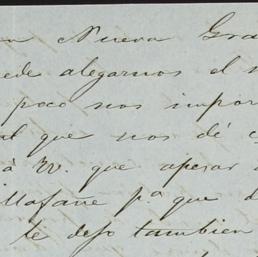 en Nueva Gra
ede alegarnos el
poco nos impor
al que nos dé
à W. que apesar
illafañe p.ª que d
te dejo tambien